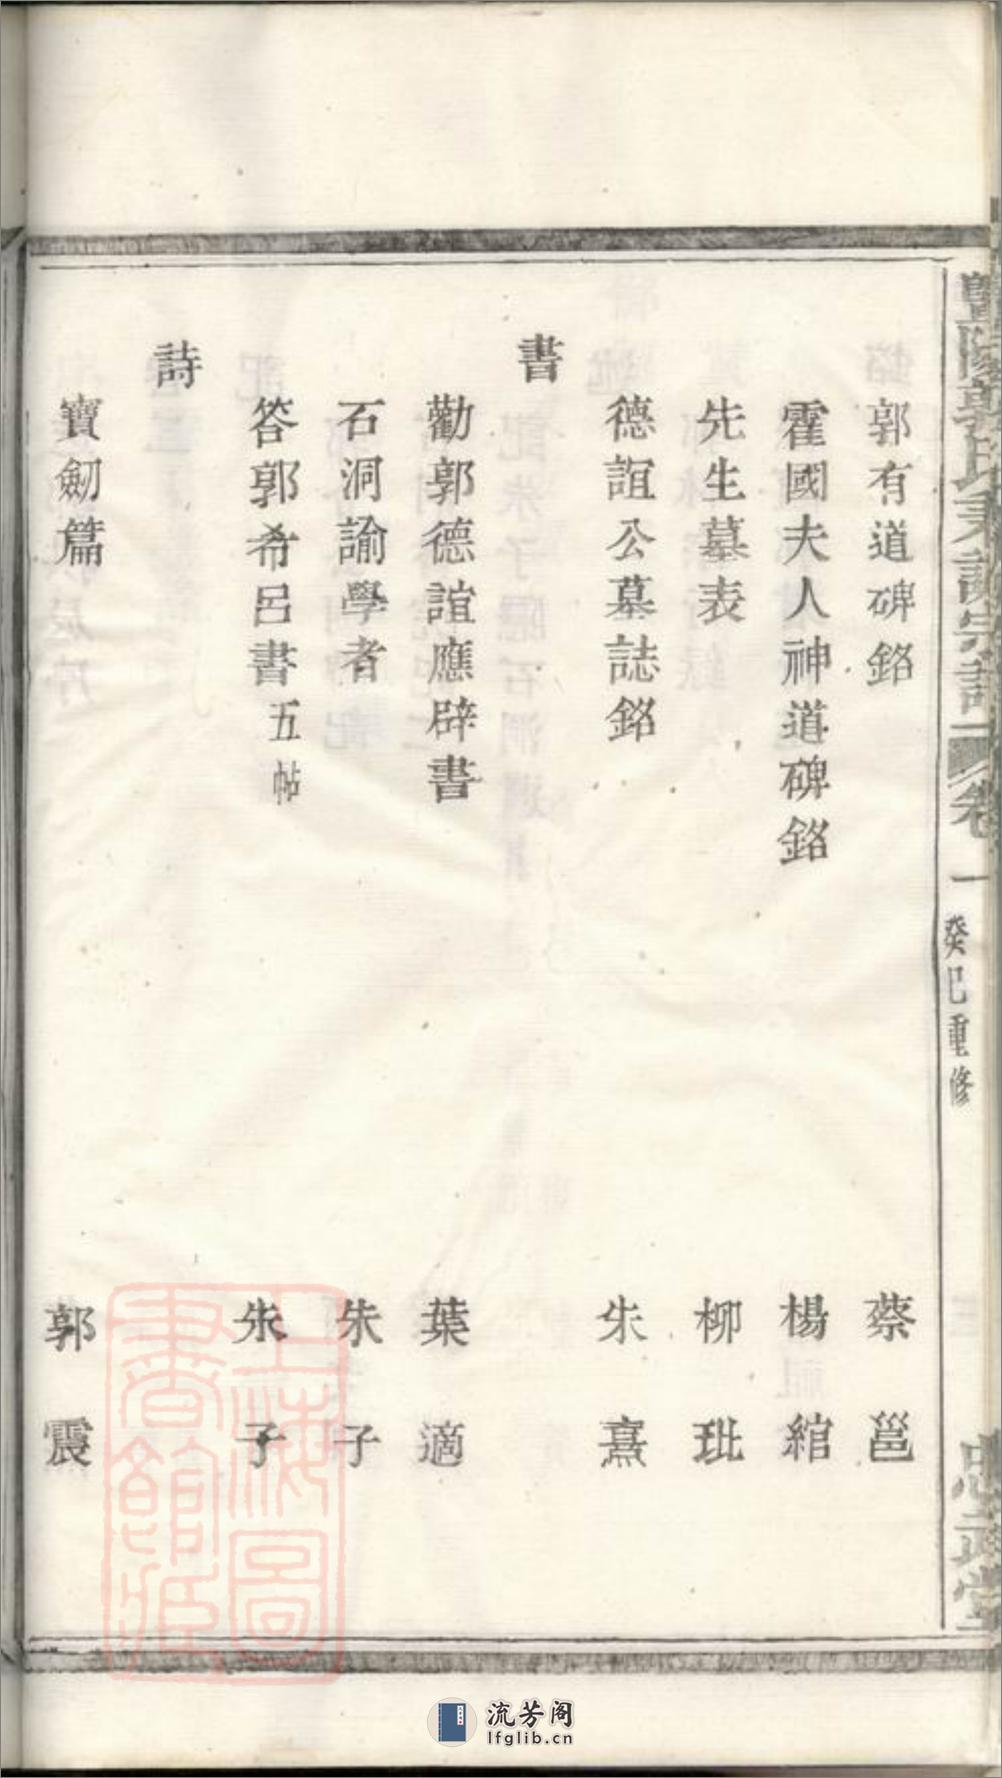 暨陽郭氏宗譜 卷一 癸巳重修 忠武堂
郭有道碑銘 蔡邕
霍國夫人神道碑銘 楊綰
先生墓表 柳玭
德誼公墓誌銘 朱熹
書
勸郭德誼應辟書 葉適
石洞諭學者 朱子
答郭希呂書五帖 朱子
詩
寶劒篇 郭震
上海圖書館藏
流芳阁
lfglib.cn